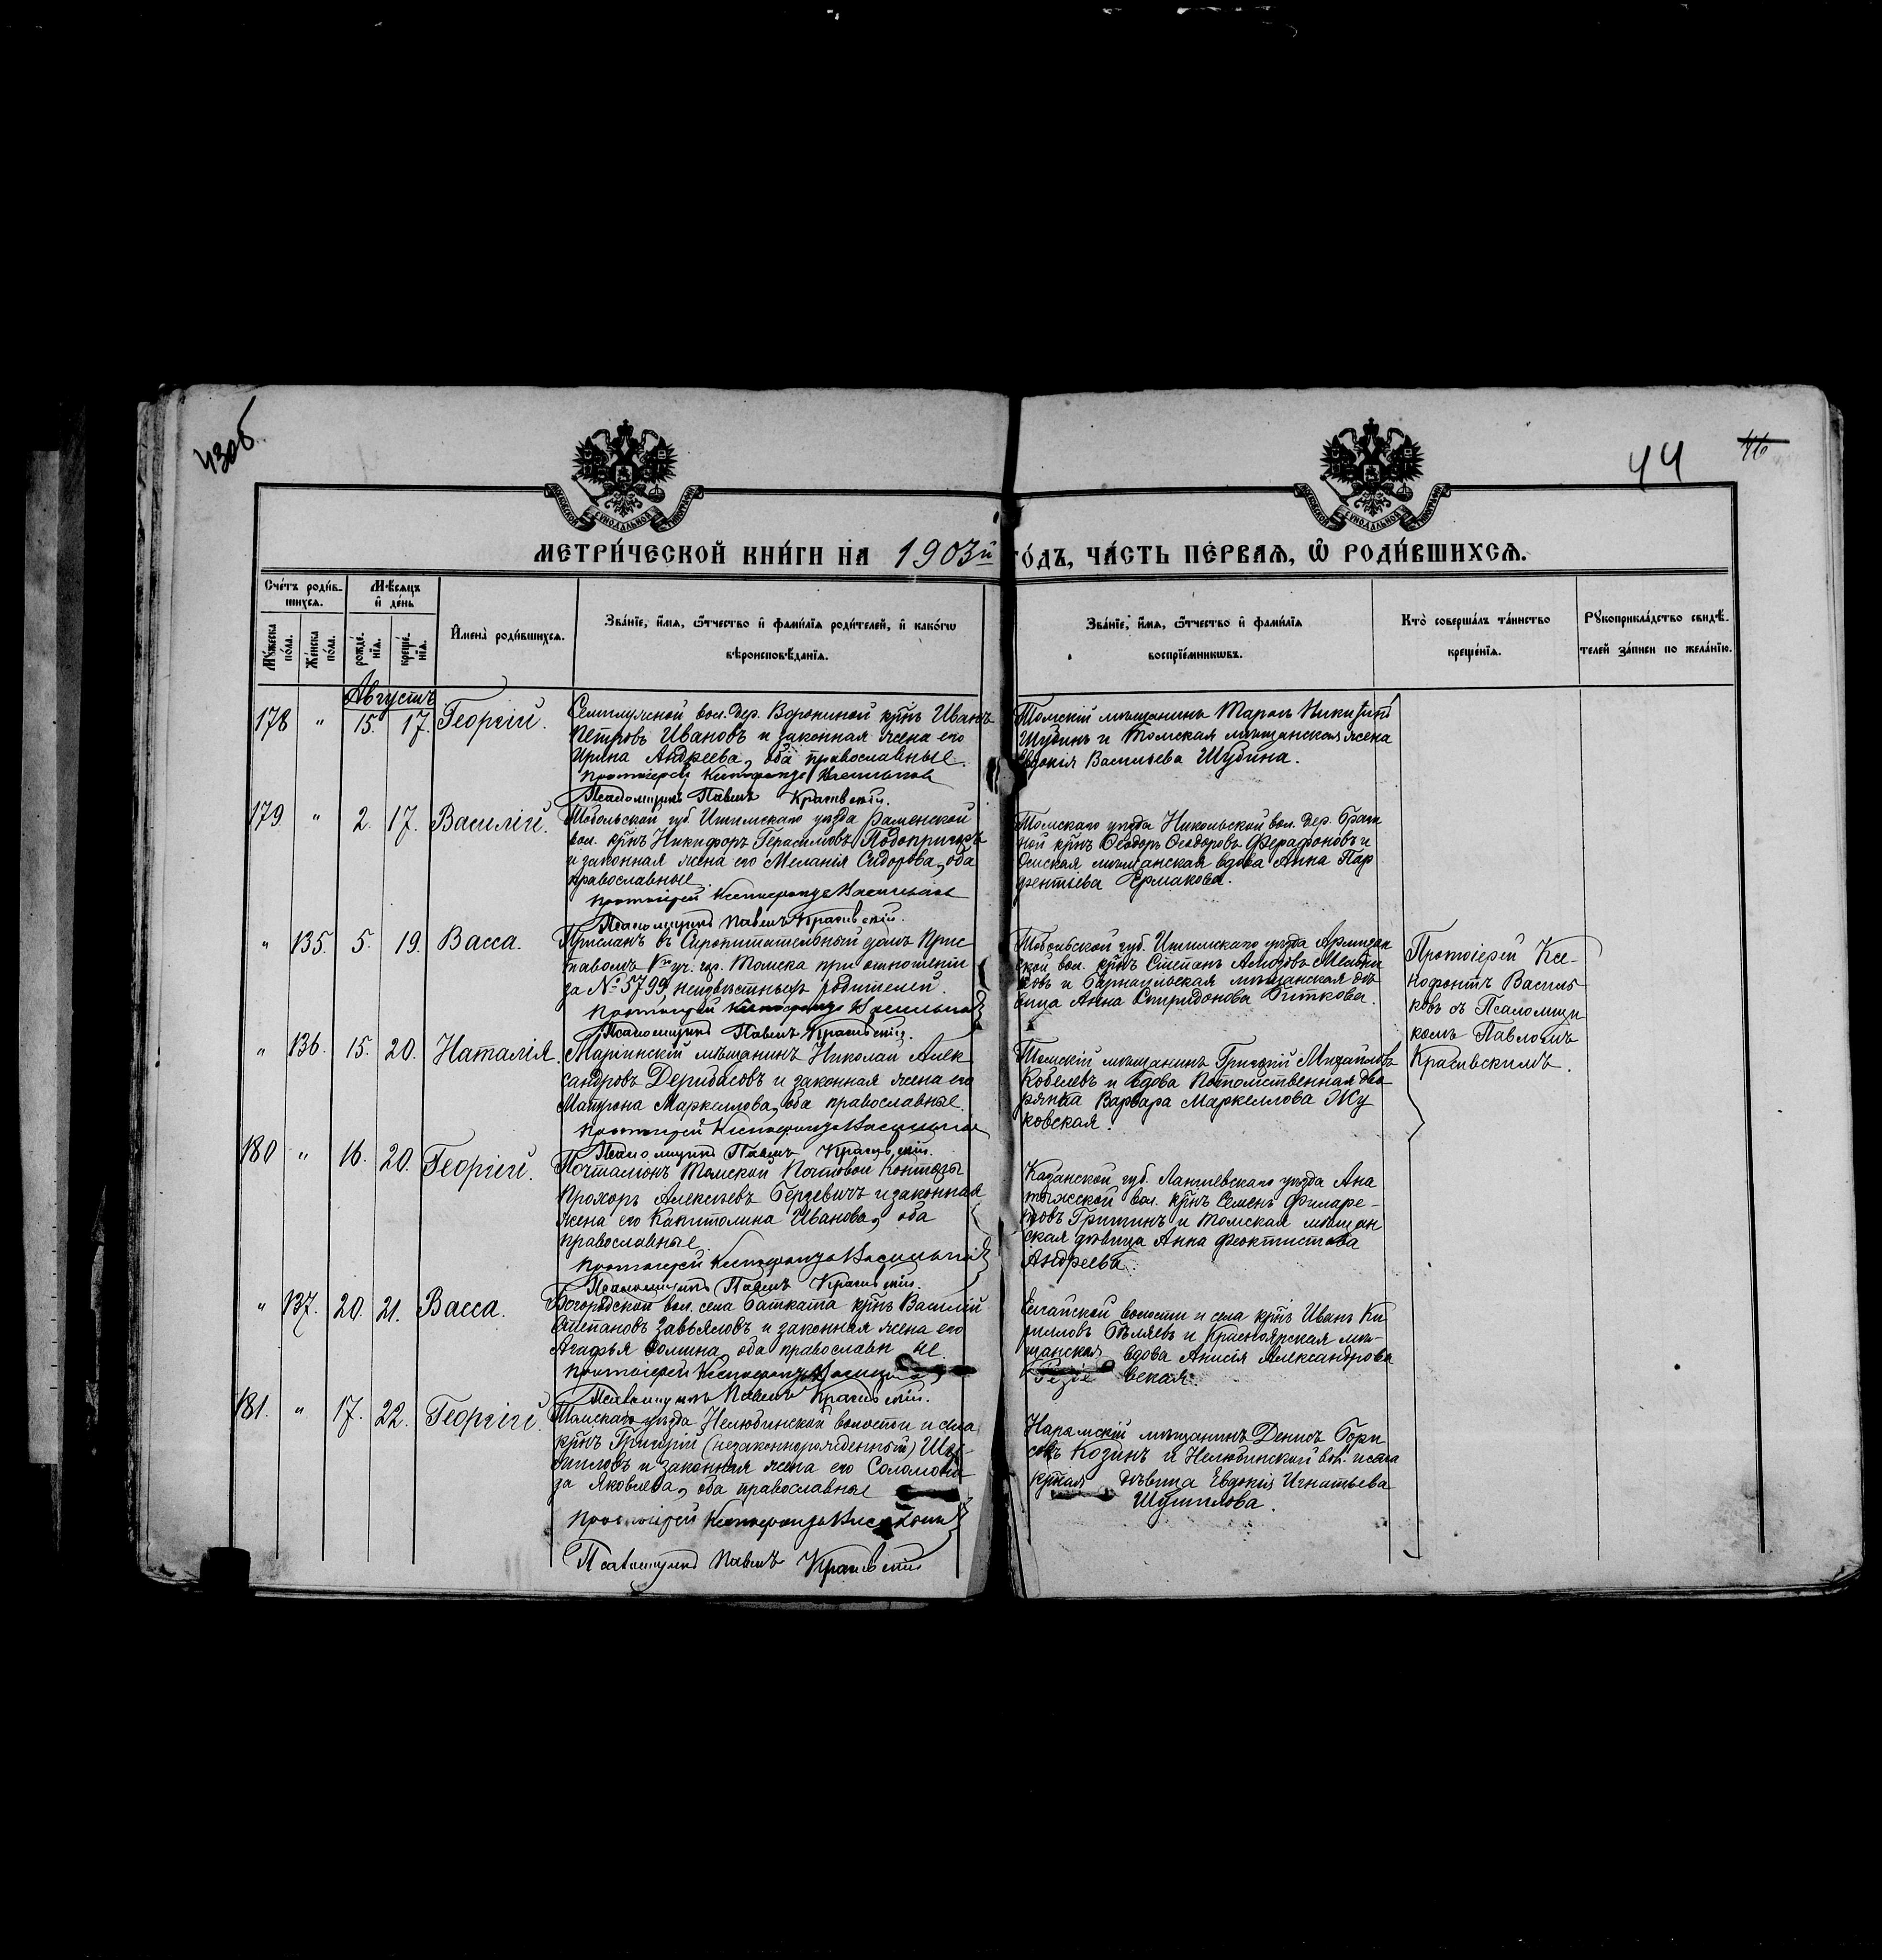 43об
44
46
МЕТРИ́ЧЕСКОЙ КНИ́ГИ НА 1903й ГО́ДЪ, ЧА́СТЬ ПЕ́РВАЯ, Ѡ РОДИ́ВШИХСЯ.
Сче́тъ роди́в-
шихся.
Му́жеска по́ла.
Же́нска по́ла.
Мѣсяцъ
и де́нь
рожде́-
нїя.
креще́-
нїя.
Имена̀ роди́вшихся.
Зва́нїе, и́мя, ѻ҆́тчество и фами́лїя роди́телей, и како́гѡ
вѣроисповѣданїя.
Зва́нїе, и́мя, ѻ҆́тчество и фами́лїя
воспрїе́мникѡвъ.
Кто̀ соверша́лъ та́инство
креще́нїя.
Рукоприкла́дство свидѣ́-
телей за́писи по жела́нїю.
Августъ
178 " 15. 17. Георгій.
Семилужной вол. дер. Ворониной кр҃нъ Иванъ
Петровъ Ивановъ и законная жена его
Ирина Андреева, оба православные.
Протоіерей Ксенофонтъ Васильковъ
Псаломщикъ Павелъ Красивскій.
Томскій мѣщанинъ
Шубинъ и Томская мѣщанская жена
Евдокія Васильева Шубина.
179 " 2. 17. Василій.
Тобольской губ. Ишимскаго уѣзда
вол. кр҃нъ Никифоръ Герасимовъ
и законная жена его Меланія Сидорова, оба
православные.
Протоіерей Ксенофонтъ Васильковъ
Псаломщикъ Павелъ Красивскій.
Томскаго уѣзда Никольской вол. дер.
ной кр҃нъ Ѳеодоръ Ѳеодоровъ и
Омская мѣщанская вдова Анна Пар
фентьева Ермакова.
" 135. 5. 19. Васса.
Присланъ въ Сиропитательный домъ Прис
тавомъ V го уч. гор. Томска при отношеніи
за № 5799, неизвѣстныхъ родителей.
Протоіерей Ксенофонтъ Васильковъ
Псаломщикъ Павелъ Красивскій.
Тобольской губ. Ишимскаго уѣзда
ской вол. кр҃нъ Степанъ Мельни
ковъ и Барнаульская мѣщанская дѣ
вица Анна Спиридонова Биткова.
Протоіерей Ксе-
нофонтъ Василь
ковъ съ Псаломщи
комъ Павломъ
Красивскимъ.
" 136. 15. 20. Наталія.
Маріинскій мѣщанинъ Николай Алек
сандровъ Дерибасовъ и законная жена его
Матрона Маркеллова, оба православные.
Протоіерей Ксенофонтъ Васильковъ
Псаломщикъ Павелъ Красивскій.
Томскій мѣщанинъ Григорій Михайловъ
Кобелевъ и вдова Потомственная дво
рянка Варвара Маркеллова Жу
ковская.
180 " 16. 20. Георгій.
Почталіонъ Томской Почтовой Конторы
Прохоръ Алексѣевъ и законная
жена его Капитолина Иванова, оба
православные.
Протоіерей Ксенофонтъ Васильковъ
Псаломщикъ Павелъ Красивскій.
Казанской губ. уѣзда
вол. кр҃нъ Семенъ Филаре-
товъ Гришинъ и Томская мѣщан
ская дѣвица Анна Ѳеоктистова
Андреева.
" 137. 20. 21. Васса.
Богородской вол. села Батката кр҃нъ Василій
Степановъ Завьяловъ и законная жена его
Агафья Ѳомина, оба православные.
Протоіерей Ксенофонтъ Васильковъ
Псаломщикъ Павелъ Красивскій.
Елгайской волости и села кр҃нъ Иванъ Ки
рилловъ Бѣляевъ и Красноярская мѣ-
щанская вдова Анисія Александрова
вская.
181. " 17. 22. Георгій.
Томскаго уѣзда Нелюбинской волости и села
кр҃нъ Григорій (незаконнорожденный) Шу-
миловъ и законная жена его Соломони-
да Яковлева, оба православные
Протоіерей Ксенофонтъ Васильковъ
Псаломщикъ Павелъ Красивскій
Нарымскій мѣщанинъ Денисъ Бори
совъ Козинъ и Нелюбинской вол. и села
дѣвица Евдокія Игнатьева
Шумилова.